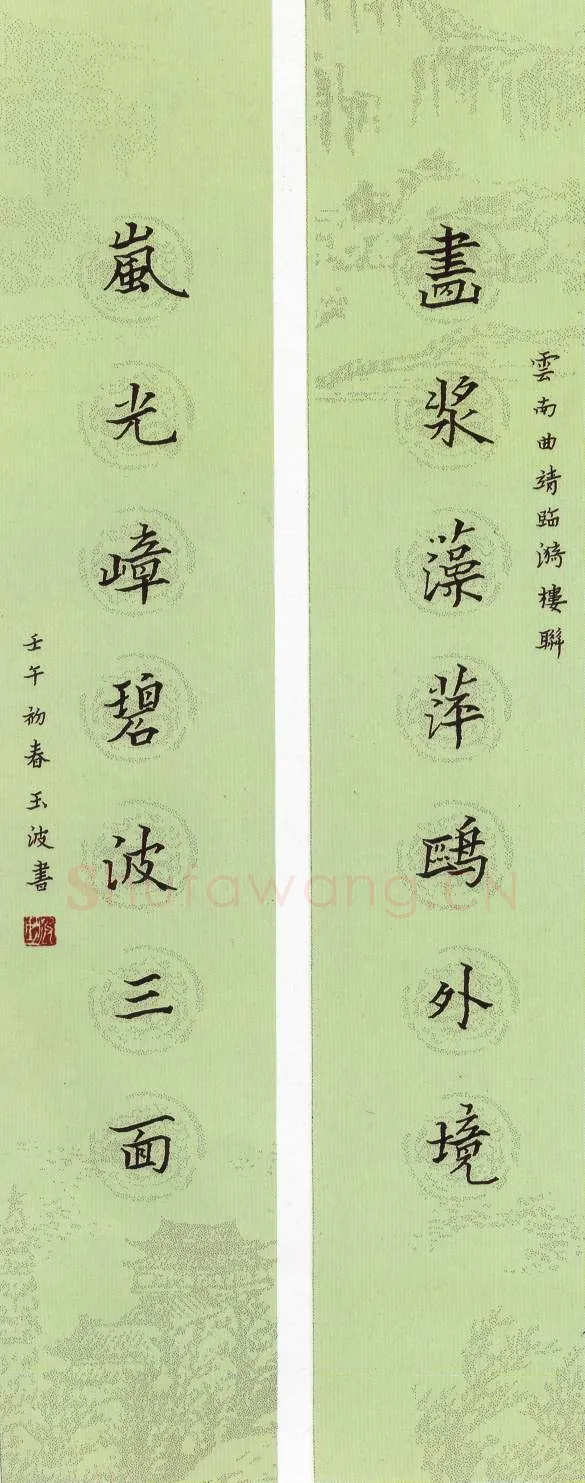 雲南曲靖臨漪樓聯
畵浆藻萍鷗外境
嵐光嶂碧波三面
壬午初春玉波書
Shufawang.CN